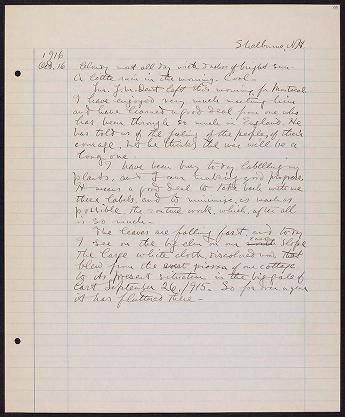 Shelburne, N.H.
1916
Oct. 16 Cloudy most all day with dashes of bright sun.
A little rain in the morning. Cool.
Mr. J. W. Dent left this morning for Montreal
I have enjoyed very much meeting him
and have learned a good deal from one who
has been through so much in England. He
has told us of the feeling of the people, of their
courage, but he thinks the war will be a
long one.
I have been busy to-day labelling my
plants, and I am making good progress.
It means a good deal to take back with me
these labels, and to minimize, as much as
possible the routine work, which, after all
is so much.
The leaves are falling fast and to-day
I see on the big elm on our slope
the large white cloth, discolored now, that
blew from the west piazza of our cottage
to its present situation in the big gale of
last September 26, 1915. So for over a year
it has fluttered there.